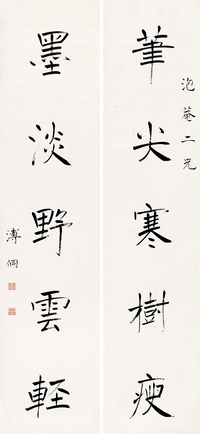 筆尖寒樹瘦
泡菴二兄
墨淡野雲輕
溥侗